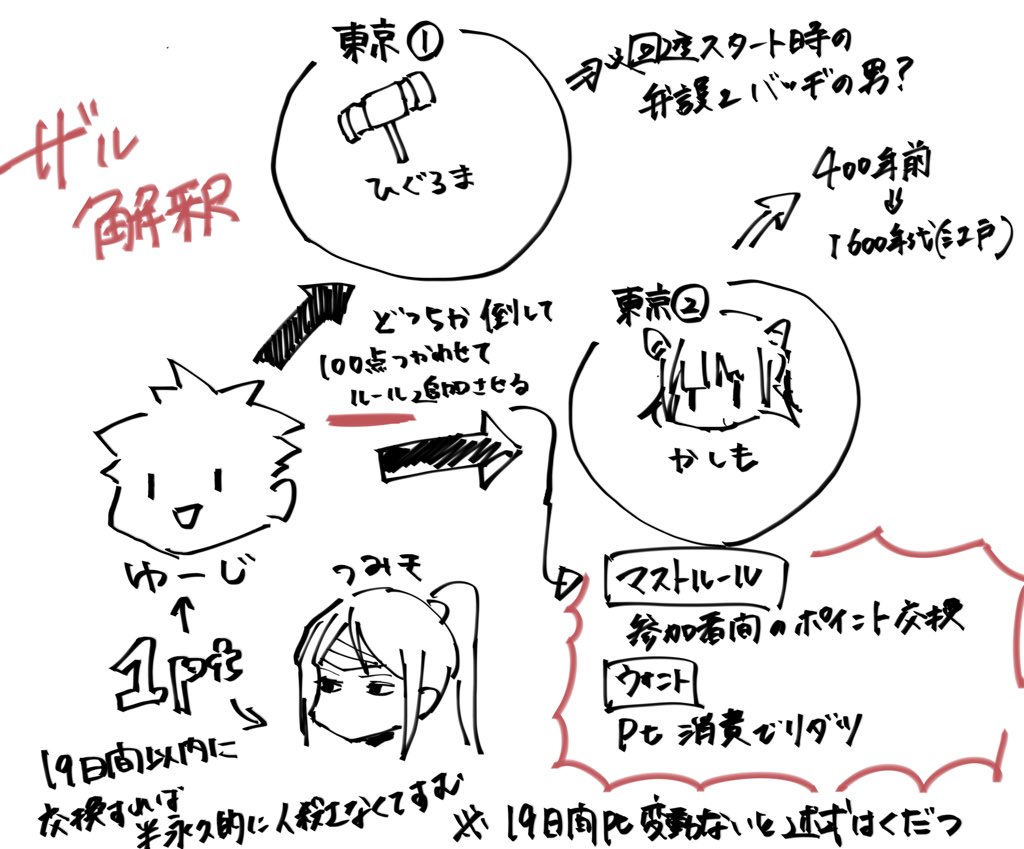 ザル
解釈
東京①
ひぐるま
回遊スタート時の
弁護士バッヂの男?
400年前
1600年代(江戸)
東京②
かしも
どっちか倒して
100点つかわせて
ルール追加させる
ゆーじ
つみき
1pt
19日間以内に
交換すれば
半永久的に人殺さなくてすむ
マストルール
参加者間のポイント交換
ウォント
Pt消費でリダツ
※19日間pt変動ないと述式はくだつ